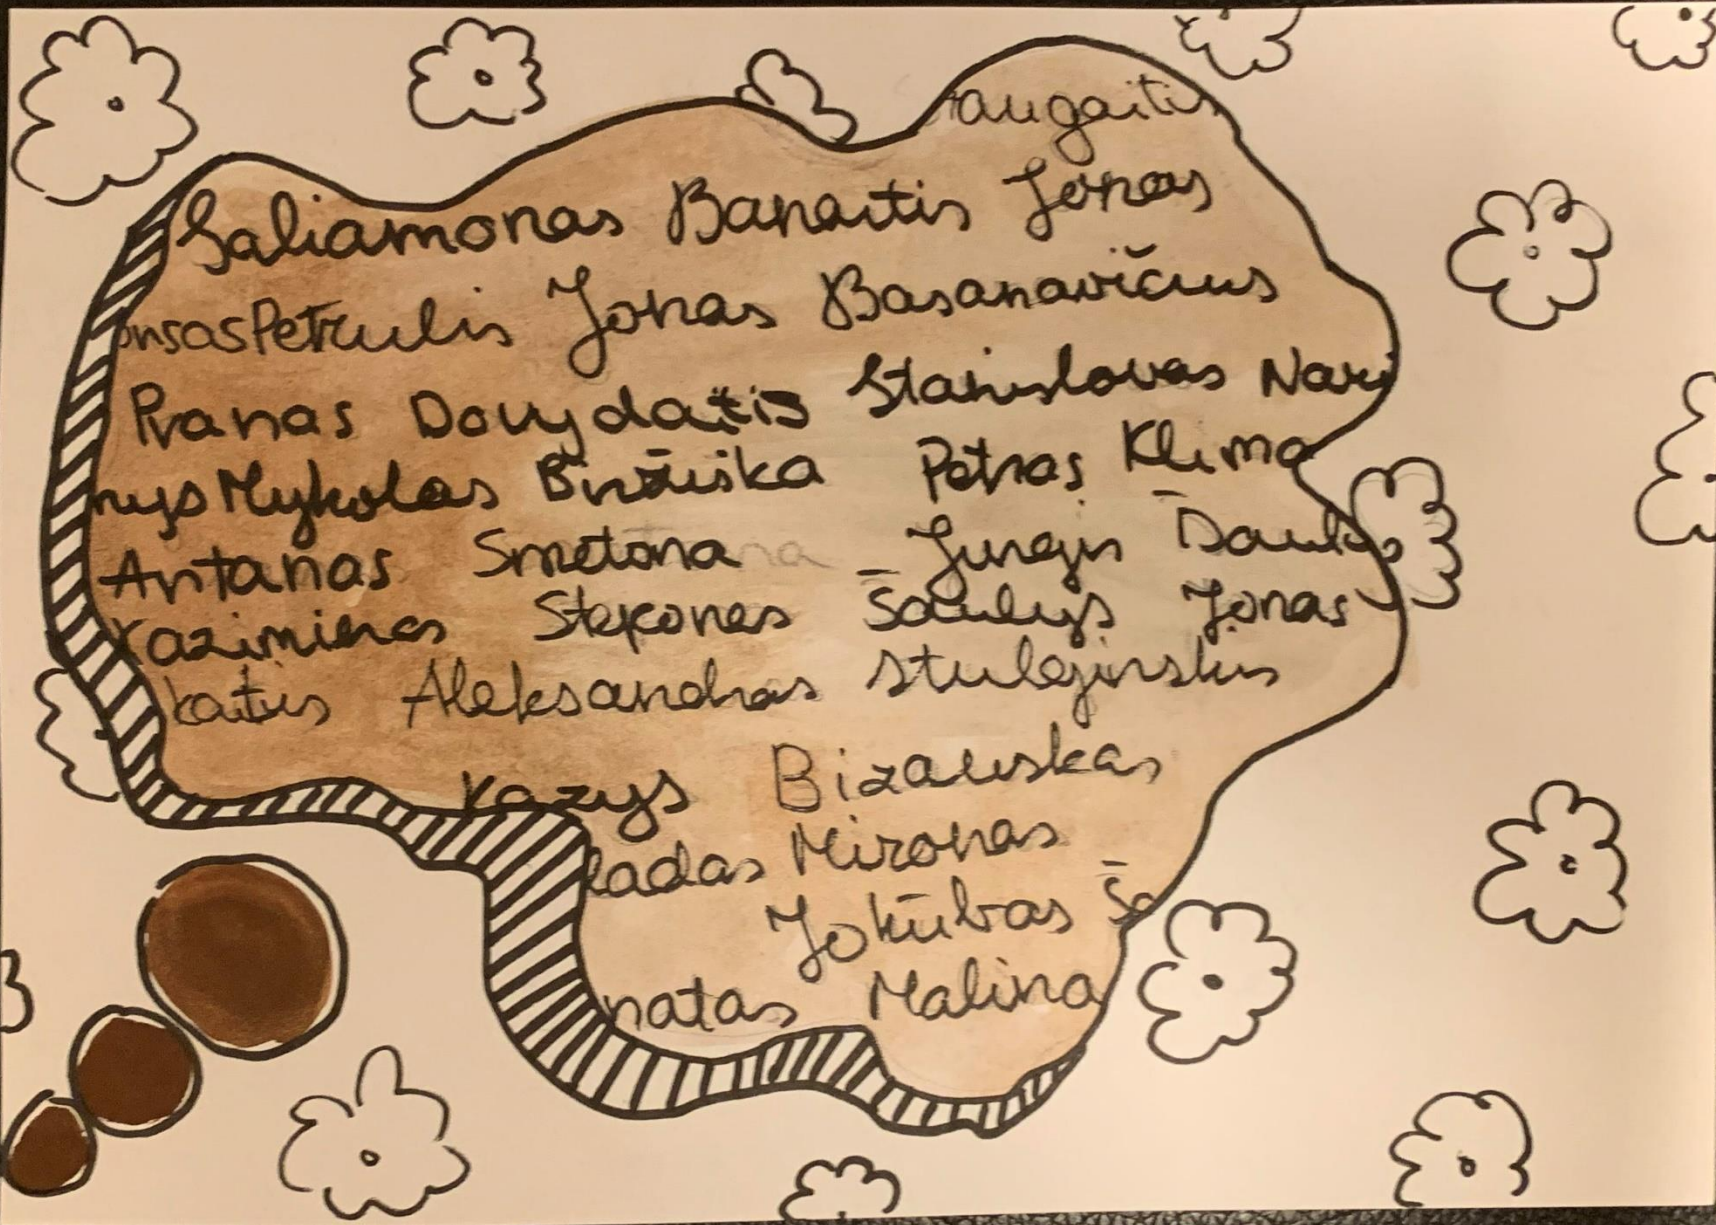 augaitis
Saliamonas Banaitis Jonas
onsas Petrulis Jonas Basanavičius
Pranas Dovydaitis Stanislovas Nari
nys Mykolas Biržiška Petras Klima
Antanas Smetona na Jurgis Šaulys
Kazimieras Steponas Šaulys Jonas
kaitis Aleksandras Stulginskis
Kazys Bizauskas
ladas Mironas
Jokūbas Še
natas Malina